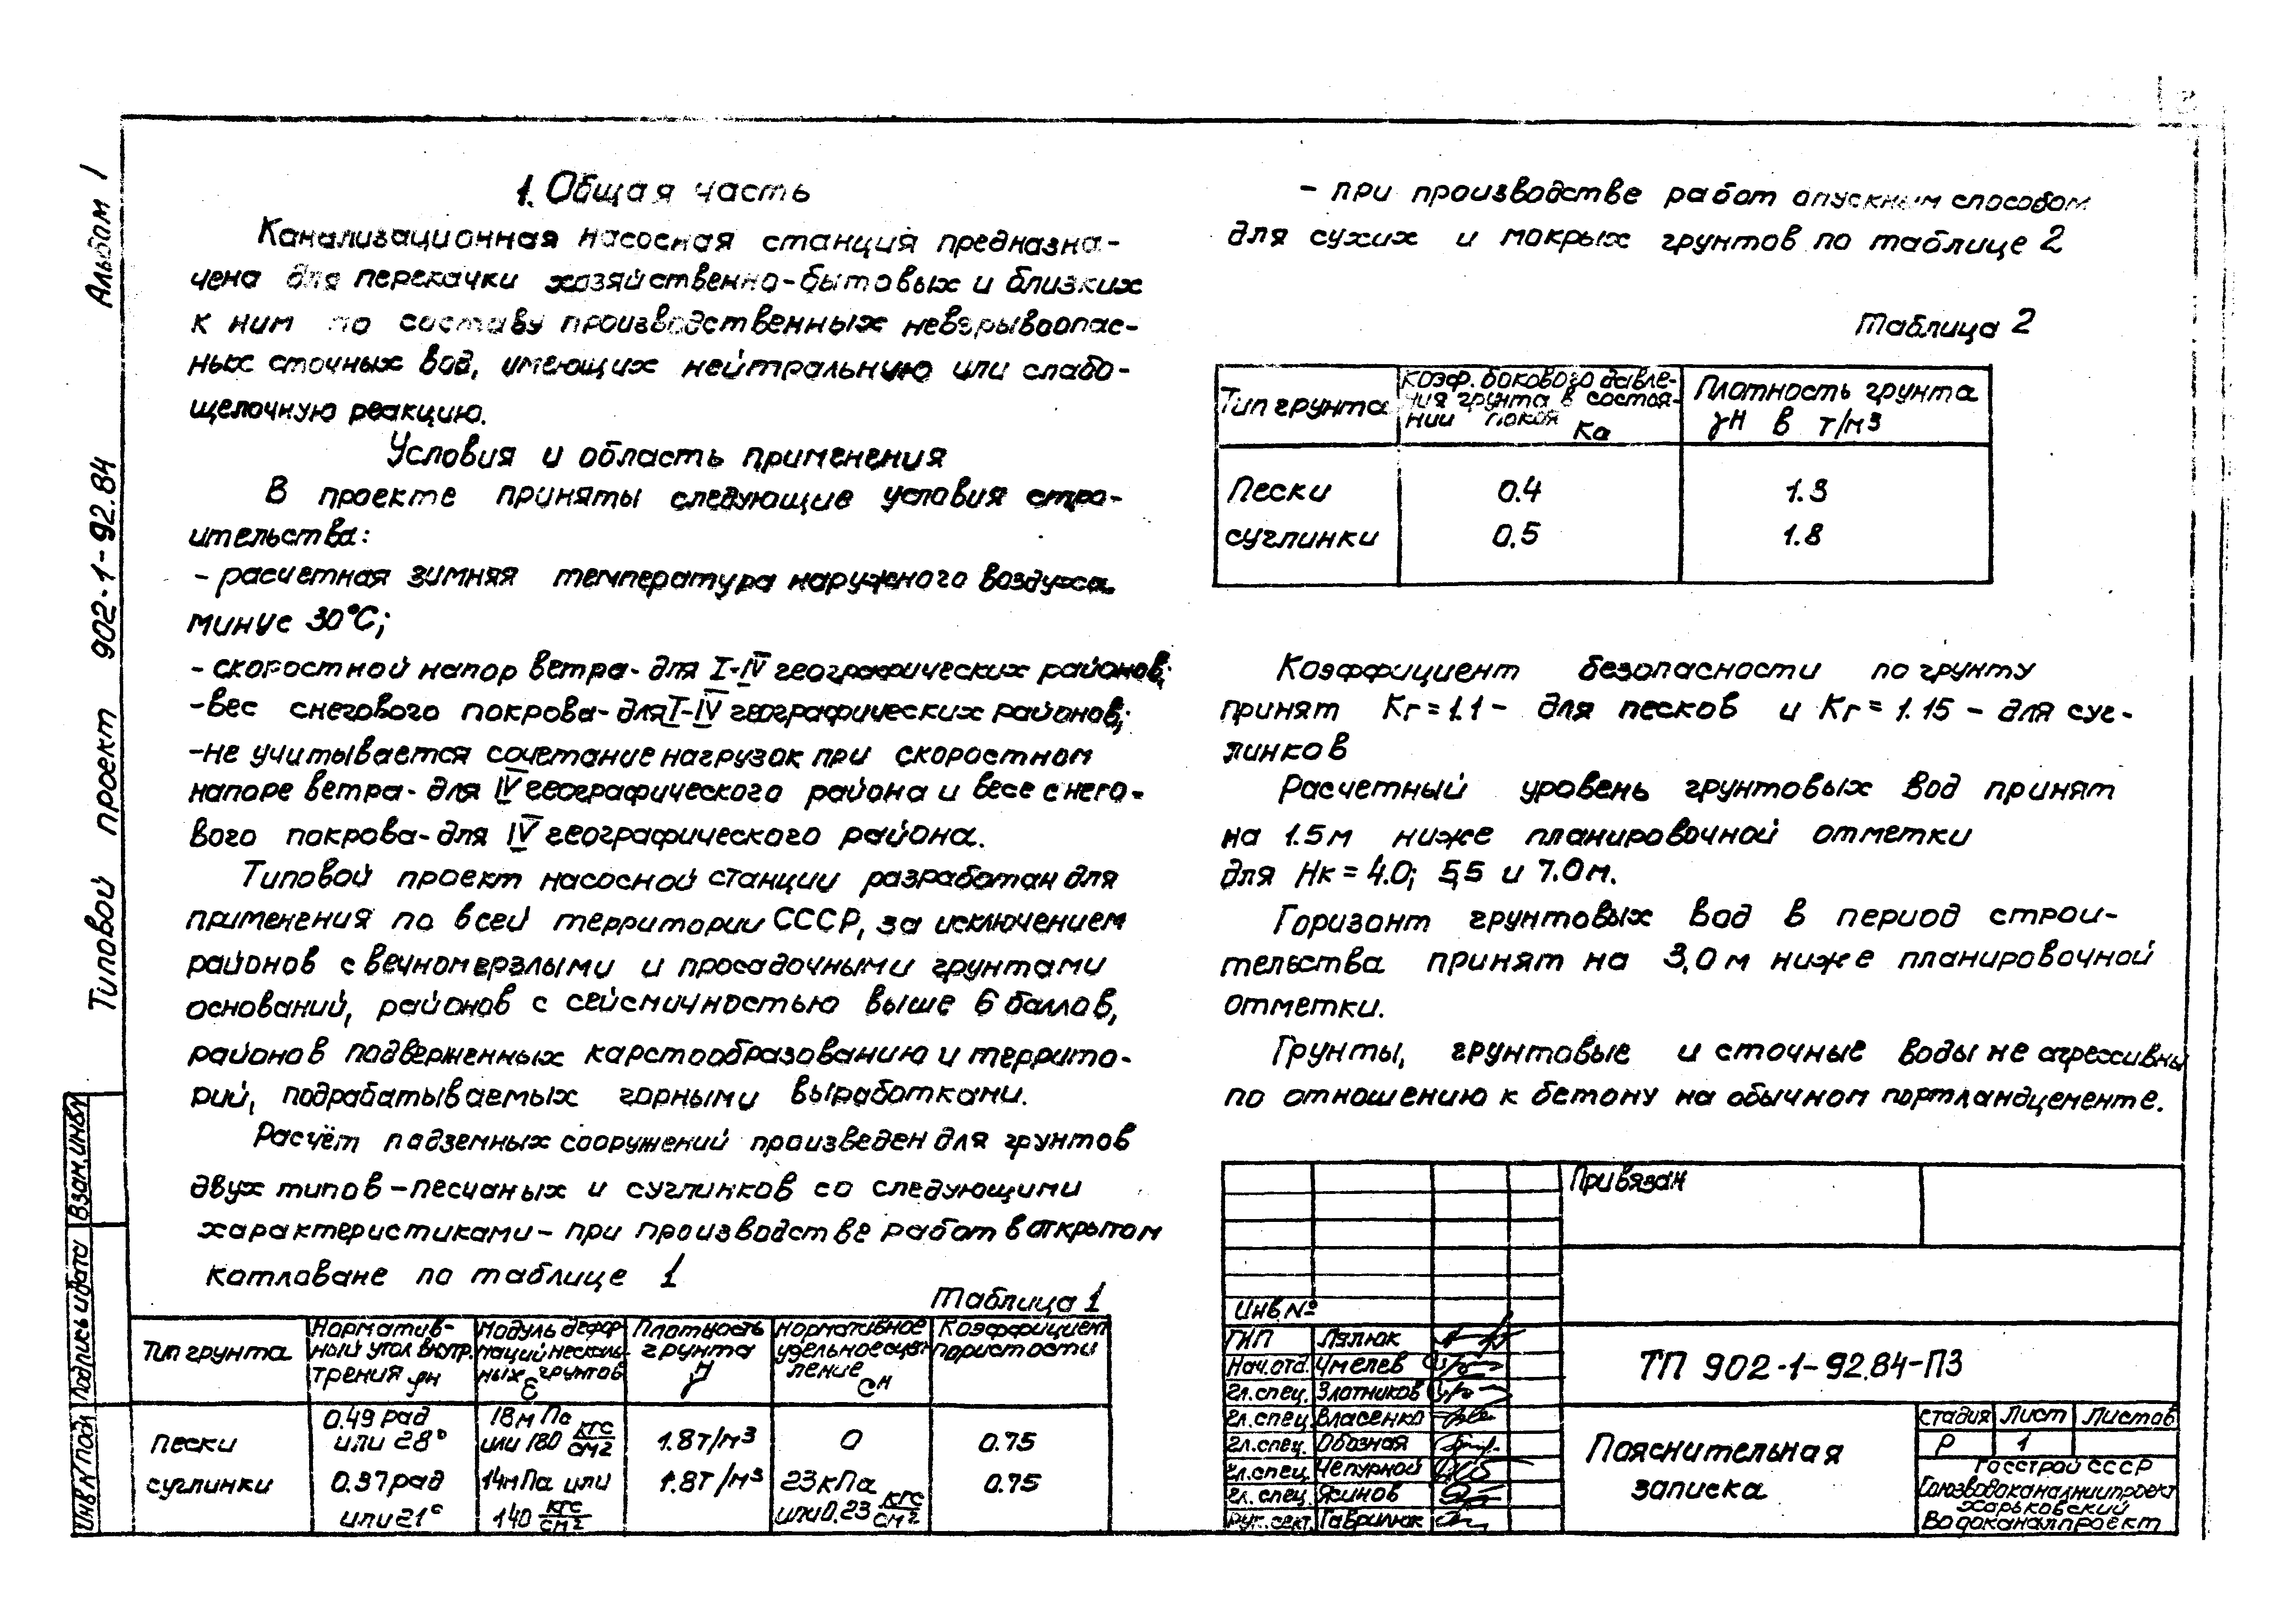 Альбом 1
Типовой проект 902-1-92.84
1. Общая часть
Канализационная насосная станция предназна-
чена для перекачки хозяйственно-бытовых и близких
к ним по составу производственных невзрывоопас-
ных сточных вод, имеющих нейтральную или слабо-
щелочную реакцию.
Условия и область применения
В проекте приняты следующие условия стро-
ительства:
- расчетная зимняя температура наружного воздуха
минус 30°С;
- скоростной напор ветра - для I-IV географических районов;
- вес снегового покрова - для I-IV географических районов;
- не учитывается сочетание нагрузок при скоростном
напоре ветра - для IV географического района и весе снего-
вого покрова - для IV географического района.
Типовой проект насосной станции разработан для
применения по всей территории СССР, за исключением
районов с вечномерзлыми и просадочными грунтами
оснований, районов с сейсмичностью выше 6 баллов,
районов подверженных карстообразованию и террито-
рий, подрабатываемых горными выработками.
Расчёт подземных сооружений произведен для грунтов
двух типов - песчаных и суглинков со следующими
характеристиками - при производстве работ в открытом
котловане по таблице 1
Таблица 1
Тип грунта
Норматив-
ный угол внутр.
трения φн
Модуль дефор
маций нескаль-
ных грунтов
E
Плотность
грунта
γн
Нормативное
удельное сцеп
ление
Сн
Коэффициент
пористости
пески
0.49 рад
или 28°
18 мПа
или 180 кгс/см2
1.8т/м3
0
0.75
суглинки
0.37 рад
или 21°
14мПа или
140 кгс/см2
1.8т/м3
23кПа
или 0.23 кгс/см2
0.75
- при производстве работ опускным способом
для сухих и мокрых грунтов по таблице 2
Таблица 2
Тип грунта
Коэф. бокового давле-
ния грунта в состоя-
нии покоя Ка
Плотность грунта
γн в т/м3
Пески 0.4 1.8
суглинки 0.5 1.8
Коэффициент безопасности по грунту
принят Кг = 1.1 - для песков и Кг = 1.15 - для суг-
линков
Расчетный уровень грунтовых вод принят
на 1.5м ниже планировочной отметки
для Нк = 4.0; 5,5 и 7.0м.
Горизонт грунтовых вод в период строи-
тельства принят на 3,0м ниже планировочной
отметки.
Грунты, грунтовые и сточные воды не агрессивны
по отношению к бетону на обычном портландцементе.
Привязан
Инв.№
ГИП Лялюк
Нач.отд. Чмелев
Гл.спец. Злотников
Гл.спец. Власенко
Гл.спец. Обозная
Гл.спец. Чепурной
Гл.спец. Ясинов
Рук.сект. Гаврилюк
ТП 902-1-92.84-ПЗ
Пояснительная
записка
Стадия Лист Листов
Р 1
Госстрой СССР
Союзводоканалниипроект
Харьковский
Водоканалпроект
Взам.инв.№
Подпись и дата
Инв.№ подл